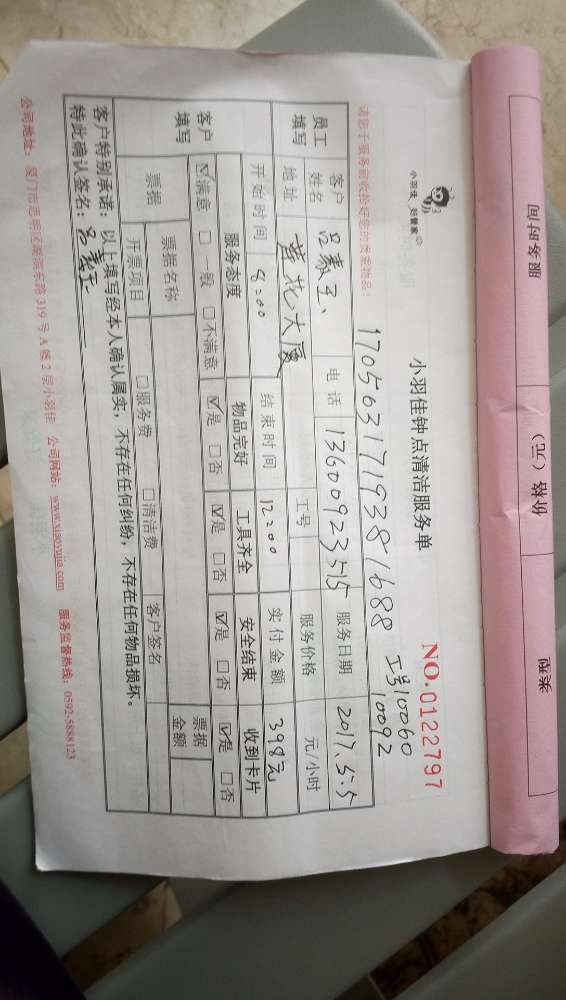 服务时间 价格(元) 类型
小羽佳 好管家
小羽佳钟点清洁服务单
NO.0122797
170563171938 1688
工号10060
10092
请您于服务前收拾好您的贵重物品!
员工填写 客户姓名 吕素玉 电话 13600923515 服务日期 2017.5.5
地址 黄花大厦 工号 服务价格 元/小时
开始时间 8:00 结束时间 12:00 实付金额 398元
客户填写 服务态度 物品完好 工具齐全 安全结束 收到卡片
☑满意 □一般 □不满意 ☑是 □否 ☑是 □否 ☑是 □否 ☑是 □否
票据 票据名称 票据金额
开票项目 □服务费 □清洁费 客户签名
客户特别承诺:以上填写经本人确认属实,不存在任何纠纷,不存在任何物品损坏。
特此确认签名:吕素玉
公司地址:厦门市思明区湖滨东路319号A幢2层小羽佳 公司网站:www.xiaoyujia.com 服务监督热线:0592-5888123